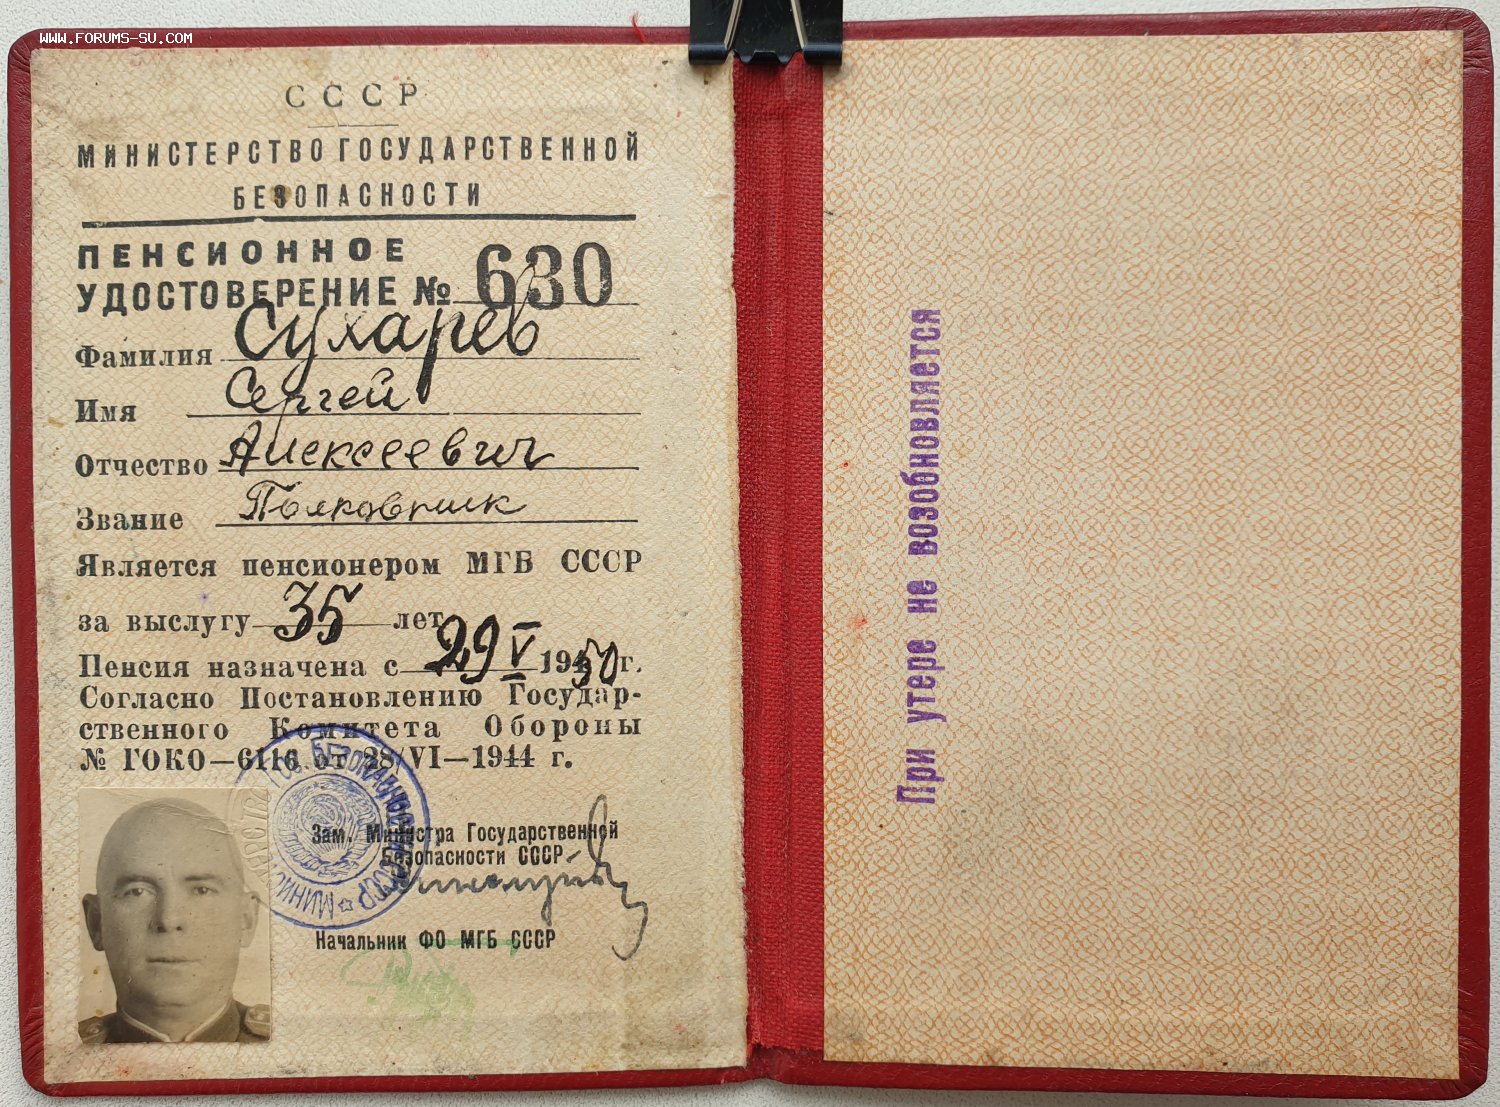 WWW.FORUMS-SU.COM
СССР
МИНИСТЕРСТВО ГОСУДАРСТВЕННОЙ
БЕЗОПАСНОСТИ
ПЕНСИОННОЕ
УДОСТОВЕРЕНИЕ № 630
Фамилия Сухарев
Имя Сергей
Отчество Алексеевич
Звание Полковник
Является пенсионером МГБ СССР
за выслугу 35 лет
Пенсия назначена с 29 V 1950 г.
Согласно Постановлению Государ-
ственного Комитета Обороны
№ ГОКО—6116 от 28/VI—1944 г.
МИНИСТЕРСТВО ГОС. БЕЗОПАСНОСТИ СССР
Зам. Министра Государственной
Безопасности СССР
Начальник ФО МГБ СССР
При утере не возобновляется